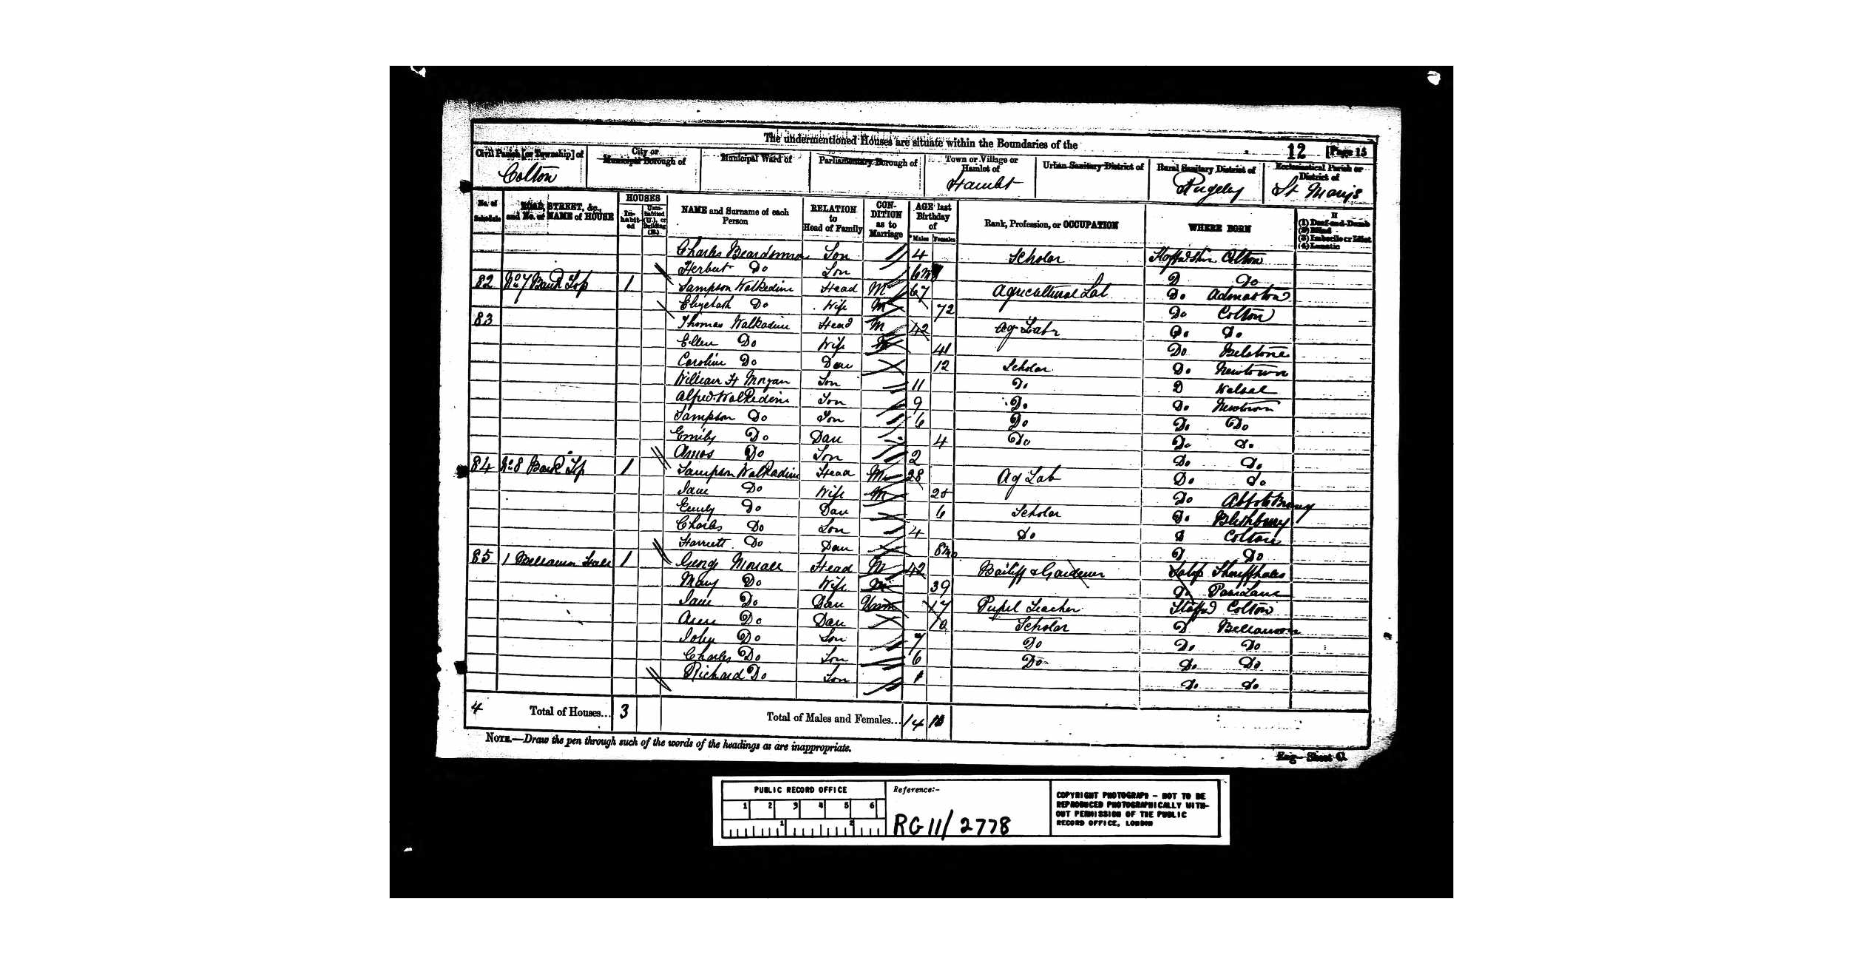 The undermentioned Houses are situate within the Boundaries of the
12 [Page 15
Civil Parish [or Township] of
City or Municipal Borough of
Municipal Ward of
Parliamentary Borough of
Town or Village or Hamlet of
Urban Sanitary District of
Rural Sanitary District of
Ecclesiastical Parish or District of
Colton Rugeley St Mary's
No. of Schedule
ROAD, STREET, &c., and No. or NAME of HOUSE
HOUSES
Inhabited
Uninhabited (U.), or Building (B.)
NAME and Surname of each Person
RELATION to Head of Family
CONDITION as to Marriage
AGE last Birthday of
Males Females
Rank, Profession, or OCCUPATION
WHERE BORN
If
(1) Deaf-and-Dumb
(2) Blind
(3) Imbecile or Idiot
(4) Lunatic
Charles Son 4 Scholar Colton
Herbert Do Son D Do
82 No 7 Bank Top 1 Sampson Walkadine Head M 67 Agricultural Lab Do Admaston
Elizabeth Do Wife M 72 Do Colton
83 Thomas Walkadine Head M 42 Ag Labr Do Do
Ellen Do Wife M 41 Do
Caroline Do Dau 12 Scholar Do Newtown
William H Morgan Son 11 Do D Walsal
Alfred Walkadine Son 9 Do Do Newtown
Sampson Do Son 6 Do Do Do
Emily Do Dau 4 Do Do Do
Amos Do Son 2 Do Do
84 No 8 Bank Top 1 Sampson Walkadine Head M 28 Ag Lab Do Do
Jane Do Wife M Do
Emily Do Dau 6 Scholar Do Blithbury
Charles Do Son 4 Do D Colton
Harriett Do Dau 8mo D Do
85 1 1 Head M 42 Bailiff & Gardener
Mary Do Wife M 39 Do
Jane Do Dau Unm 17 Pupil Teacher Staffd Colton
Ann Do Dau 10 Scholar D
John Do Son 7 Do Do Do
Charles Do Son 6 Do Do Do
Richard Do Son 1 Do Do
4 Total of Houses... 3 Total of Males and Females... 14 10
NOTE.—Draw the pen through such of the words of the headings as are inappropriate.
Eng—Sheet G.
PUBLIC RECORD OFFICE
1 2 3 4 5 6
1 2
Reference:-
RG 11/2778
COPYRIGHT PHOTOGRAPH - NOT TO BE
REPRODUCED PHOTOGRAPHICALLY WITH-
OUT PERMISSION OF THE PUBLIC
RECORD OFFICE, LONDON